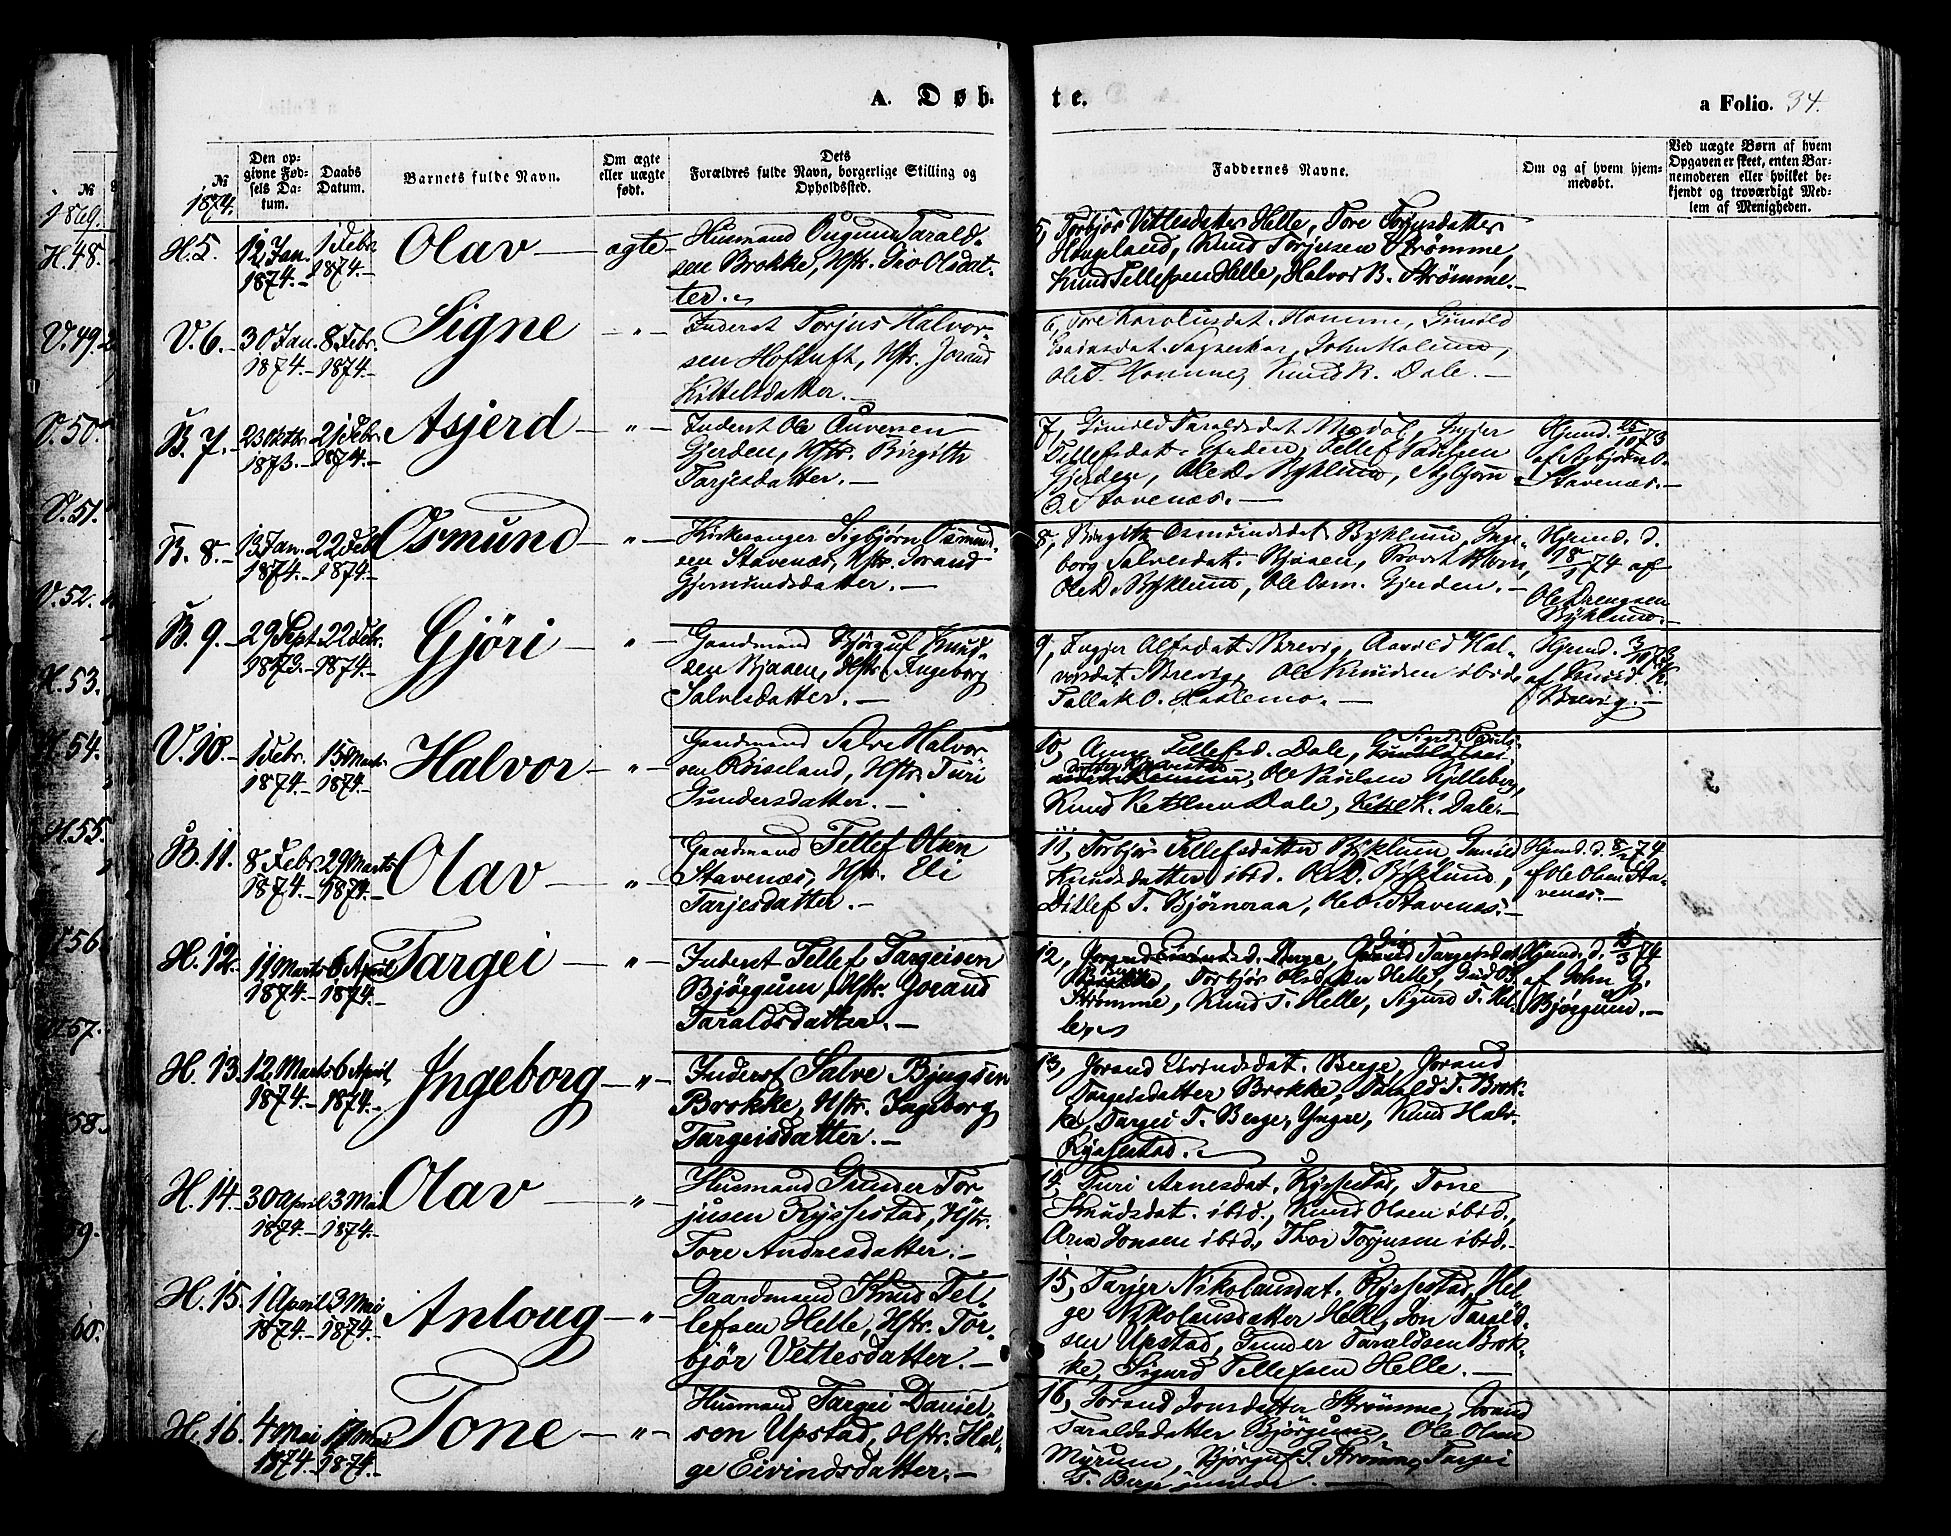 A. Døb-
te.
a Folio. 34.
№
1869.
H. 48.
V. 49.
V. 50.
V. 51.
V. 52.
H. 53.
H. 54.
H. 55.
56.
57.
58.
59.
60.
№
1874.
Den op-
givne Fød-
sels Da-
tum.
Daabs
Datum.
Barnets fulde Navn.
Om ægte
eller uægte
født.
Dets
Forældres fulde Navn, borgerlige Stilling og
Opholdssted.
Faddernes Navne.
Om og af hvem hjem-
medøbt.
Ved uægte Børn af hvem
Opgaven er skeet, enten Bar-
nemoderen eller hvilket be-
kjendt og troværdigt Med-
lem af Menigheden.
H. 5.
12 Jan.
1874.-
1 Febr
1874.-
Olav
ægte
Husmand Ougund Tarald-
sen Brokke, Hstr. Gro Olsdat-
ter.
5, Torbjør Vittesdatter Helle, Tore Torjusdatter
Haugland, Knud Torjusen Strømme,
Knud Tellefsen Helle, Halvor B. Strømme.-
V. 6.-
30 Jan.
1874.-
8 Febr.
1874.-
Signe
-"-
Inderst Torjus Halvor-
sen Hoftuft, Hstr. Jorand
Kittelsdatter.-
6, Tore Karolusdat. Homme, Gunild
John
Ole T. Homme, Knud K. Dale.-
B. 7.-
23 Oktbr.
1873.-
21 Febr
1874.-
Asjerd
-"-
Inderst Ole Ouversen
Gjerden, Hstr. Birgith
Tarjesdatter.-
7, Gunild Taraldsdat. Ingjer
Tellefsdat. Gjerden, Tellef Paulsen
Gjerden, Ole D. Byklum, Asbjørn
O. Stavenæs.-
Hjemd. 25/10 73
af Asbjørn O.
Stavenæs.-
B. 8.-
13 Jan.
1874.-
22 Feb
1874.-
Osmund
-"-
Kirkesanger Sigbjørn Osmund-
sen Stavenæs, Hstr. Jorand
Gjermundsdatter.-
8, Birgith Osmundsdat. Byklum, Inge-
borg Salvesdat. Bjaaen,
Ole D. Byklum, Ole Osm. Gjerden.-
Hjemd. d.
18/1 74 af
Ole Drengsen
Byklum.-
B. 9.-
29 Sept.
1873.-
22 Febr.
1874.-
Gjöri
"
Gaardmand Björguf Knud-
sen Bjaaen, Hstr. Ingeborg
Salvesdatter.-
9, Ingjer Alfsdat. Brevig, Aasild Hal-
vorsdat. Brevig, Ole Knudsen ibid.
Tallak O. Hoslemo.-
Hjemd. 3/10 73
af Knud K.
Brevig.-
V. 10.-
1 Febr.
1874.-
15 Marts
1874.-
Halvor
-"-
Gaardmand Salve Halvor-
sen Röiseland, Hstr. Turi
Gundersdatter.-
10, Anne Tellefsd. Dale,
Ole Paulsen Kjelleberg,
Knud Ketilsen Dale, Ketil K. Dale.-
B. 11.
8 Febr.
1874.-
29 Marts
1874.-
Olav
-"-
Gaardmand Tellef Olsen
Stavenæs, Hstr. Eli
Tarjesdatter.-
11, Torbjør Tellefsdatter Byklum, Gunild
Knudsdatter ibid. Ole D. Byklum,
Ditlef T. Bjørneraa, Ole O. Stavenæs.-
Hjemd. d. 8/2 74
af Ole Olsen Sta-
venæs.-
H. 12.
11 Marts
1874.-
6 April
1874.-
Targei
-"-
Inderst Tellef Targeisen
Björgum, Hstr. Jorand
Taraldsdatter.-
12, Jorand Eivindsd. Berge, Targeisdat.
Torbjør Olsd. Helle, Gud Ol.
Strømme, Knud T. Helle, Sigurd T. Hel-
le.
Hjemd. d. 15/3 74
af John G.
Bjørgum.-
H. 13.
12 Marts
1874.-
6 April
1874.-
Ingeborg
-"-
Inderst Salve Bjugsen
Brokke, Hstr. Ingeborg
Targeisdatter.-
13, Jorand Eivindsdat. Berge, Jorand
Targeisdatter Brokke, Tarald T. Brok-
ke, Targei T. Berge, Yngre, Knud Halv.
Ryssestad.
H. 14.-
30 April
1874.-
3 Mai
1874.-
Olav
-"-
Husmand Gunder Tor-
jusen Ryssestad, Hstr.
Tore Andresdatter.-
14, Turi Arnesdat. Ryssestad, Tone
Knudsdat. ibid., Knud Olsen ibid.,
Aren Jonsen ibid., Thor Torjusen ibid.-
H. 15.
1 April
1874.-
3 Mai
1874.-
Anloug
-"-
Gaardmand Knud Tel-
lefsen Helle, Hstr. Tor-
bjør Vettesdatter.-
15, Tarjer Nikolausdat. Ryssestad, Hel-
ge Nikolausdatter Helle, Jon Tarald-
sen Upstad, Gunder Taraldsen Brok-
ke, Sigurd Tellefsen Helle.-
H. 16.
4 Mai
1874.-
17 Mai
1874.-
Tone
-"-
Husmand Targei Daniel-
sen Upstad, Hstr. Hel-
ge Eivindsdatter.-
16, Jorand Jonsdatter Strømme, Jorand
Taraldsdatter Björgum, Ole Olsen
Myrum, Bjørguf S. Strømme, Targei
T. Berge